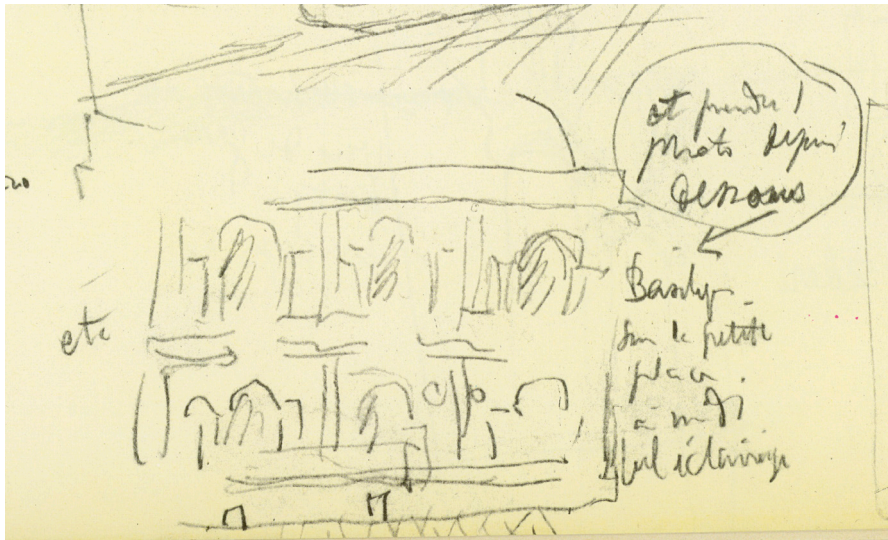 et prendre 1
photo depuis
dessous
etc
Basiliq
sur la petite
place
à midi
bel éclairage